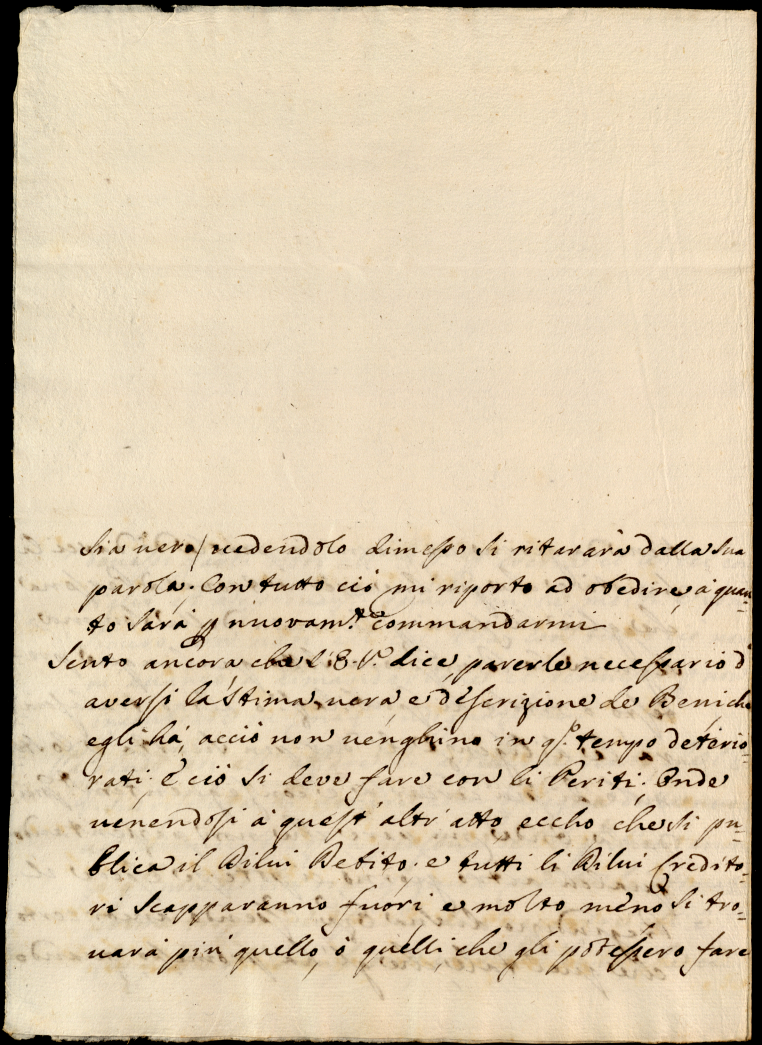 sia vero/vedendolo dimesso si ritararà dalla sua
parola. Con tutto ciò mi riporto ad obedire, à quan=
to sarà p nuovam.te commandarmi
Sento ancora che dice, parerle necessario d'
aversi la stima vera e descrizione de Beni che
egli hà, acciò non venghino in qs.o tempo deterio=
rati; è ciò si deve fare con li Periti. Onde
venendosi à quest'altr'atto eccho che si pu=
blica il Dilui Debito. e tutti li Dilui Credito=
ri scapparanno fuori e molto meno si tro=
uarà più quello, ò quelli, che gli potessero fare